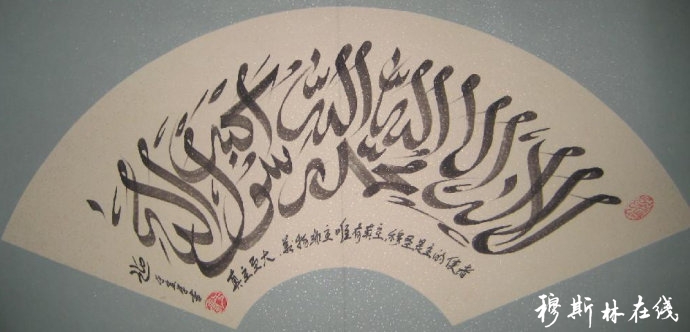 لا اله الا الله الله اكبر
محمد رسول الله
真主至大 萬物非主 唯有真主 穆聖是主的使者
穆斯林在线